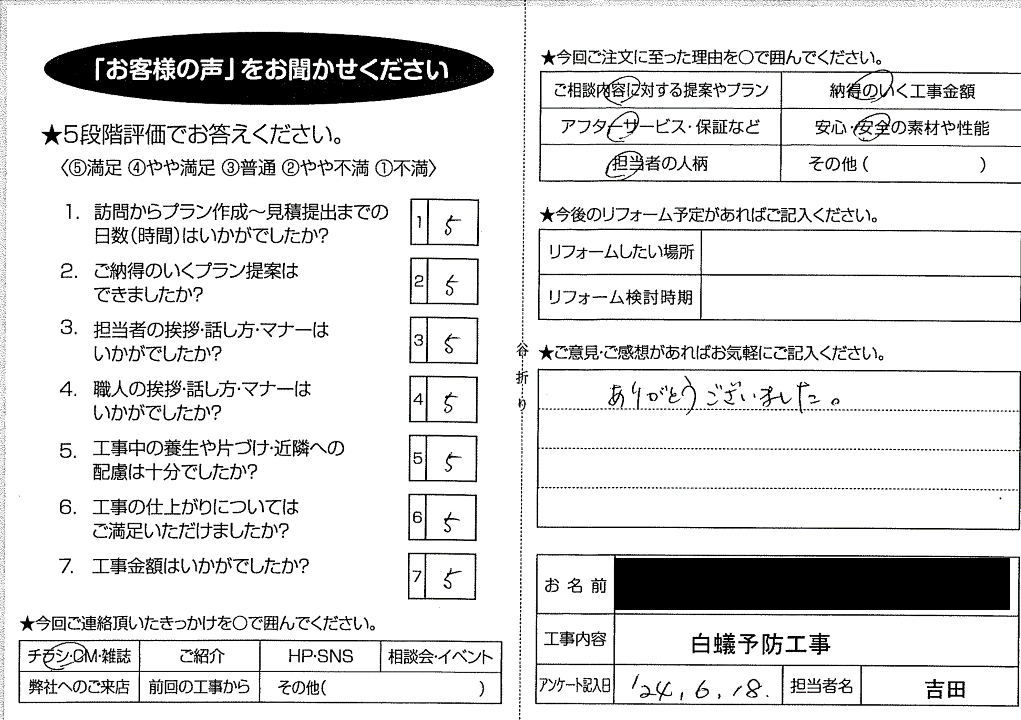 「お客様の声」をお聞かせください
★5段階評価でお答えください。
〈⑤満足 ④やや満足 ③普通 ②やや不満 ①不満〉
1. 訪問からプラン作成〜見積提出までの
日数(時間)はいかがでしたか?
1 5
2. ご納得のいくプラン提案は
できましたか?
2 5
3. 担当者の挨拶・話し方・マナーは
いかがでしたか?
3 5
4. 職人の挨拶・話し方・マナーは
いかがでしたか?
4 5
5. 工事中の養生や片づけ・近隣への
配慮は十分でしたか?
5 5
6. 工事の仕上がりについては
ご満足いただけましたか?
6 5
7. 工事金額はいかがでしたか?
7 5
★今回ご連絡頂いたきっかけを〇で囲んでください。
チラシ・CM・雑誌 ご紹介 HP・SNS 相談会・イベント
弊社へのご来店 前回の工事から その他( )
谷折り
★今回ご注文に至った理由を〇で囲んでください。
ご相談内容に対する提案やプラン 納得のいく工事金額
アフターサービス・保証など 安心・安全の素材や性能
担当者の人柄 その他( )
★今後のリフォーム予定があればご記入ください。
リフォームしたい場所
リフォーム検討時期
★ご意見・ご感想があればお気軽にご記入ください。
ありがとうございました。
お名前
工事内容 白蟻予防工事
アンケート記入日 '24.6.18. 担当者名 吉田